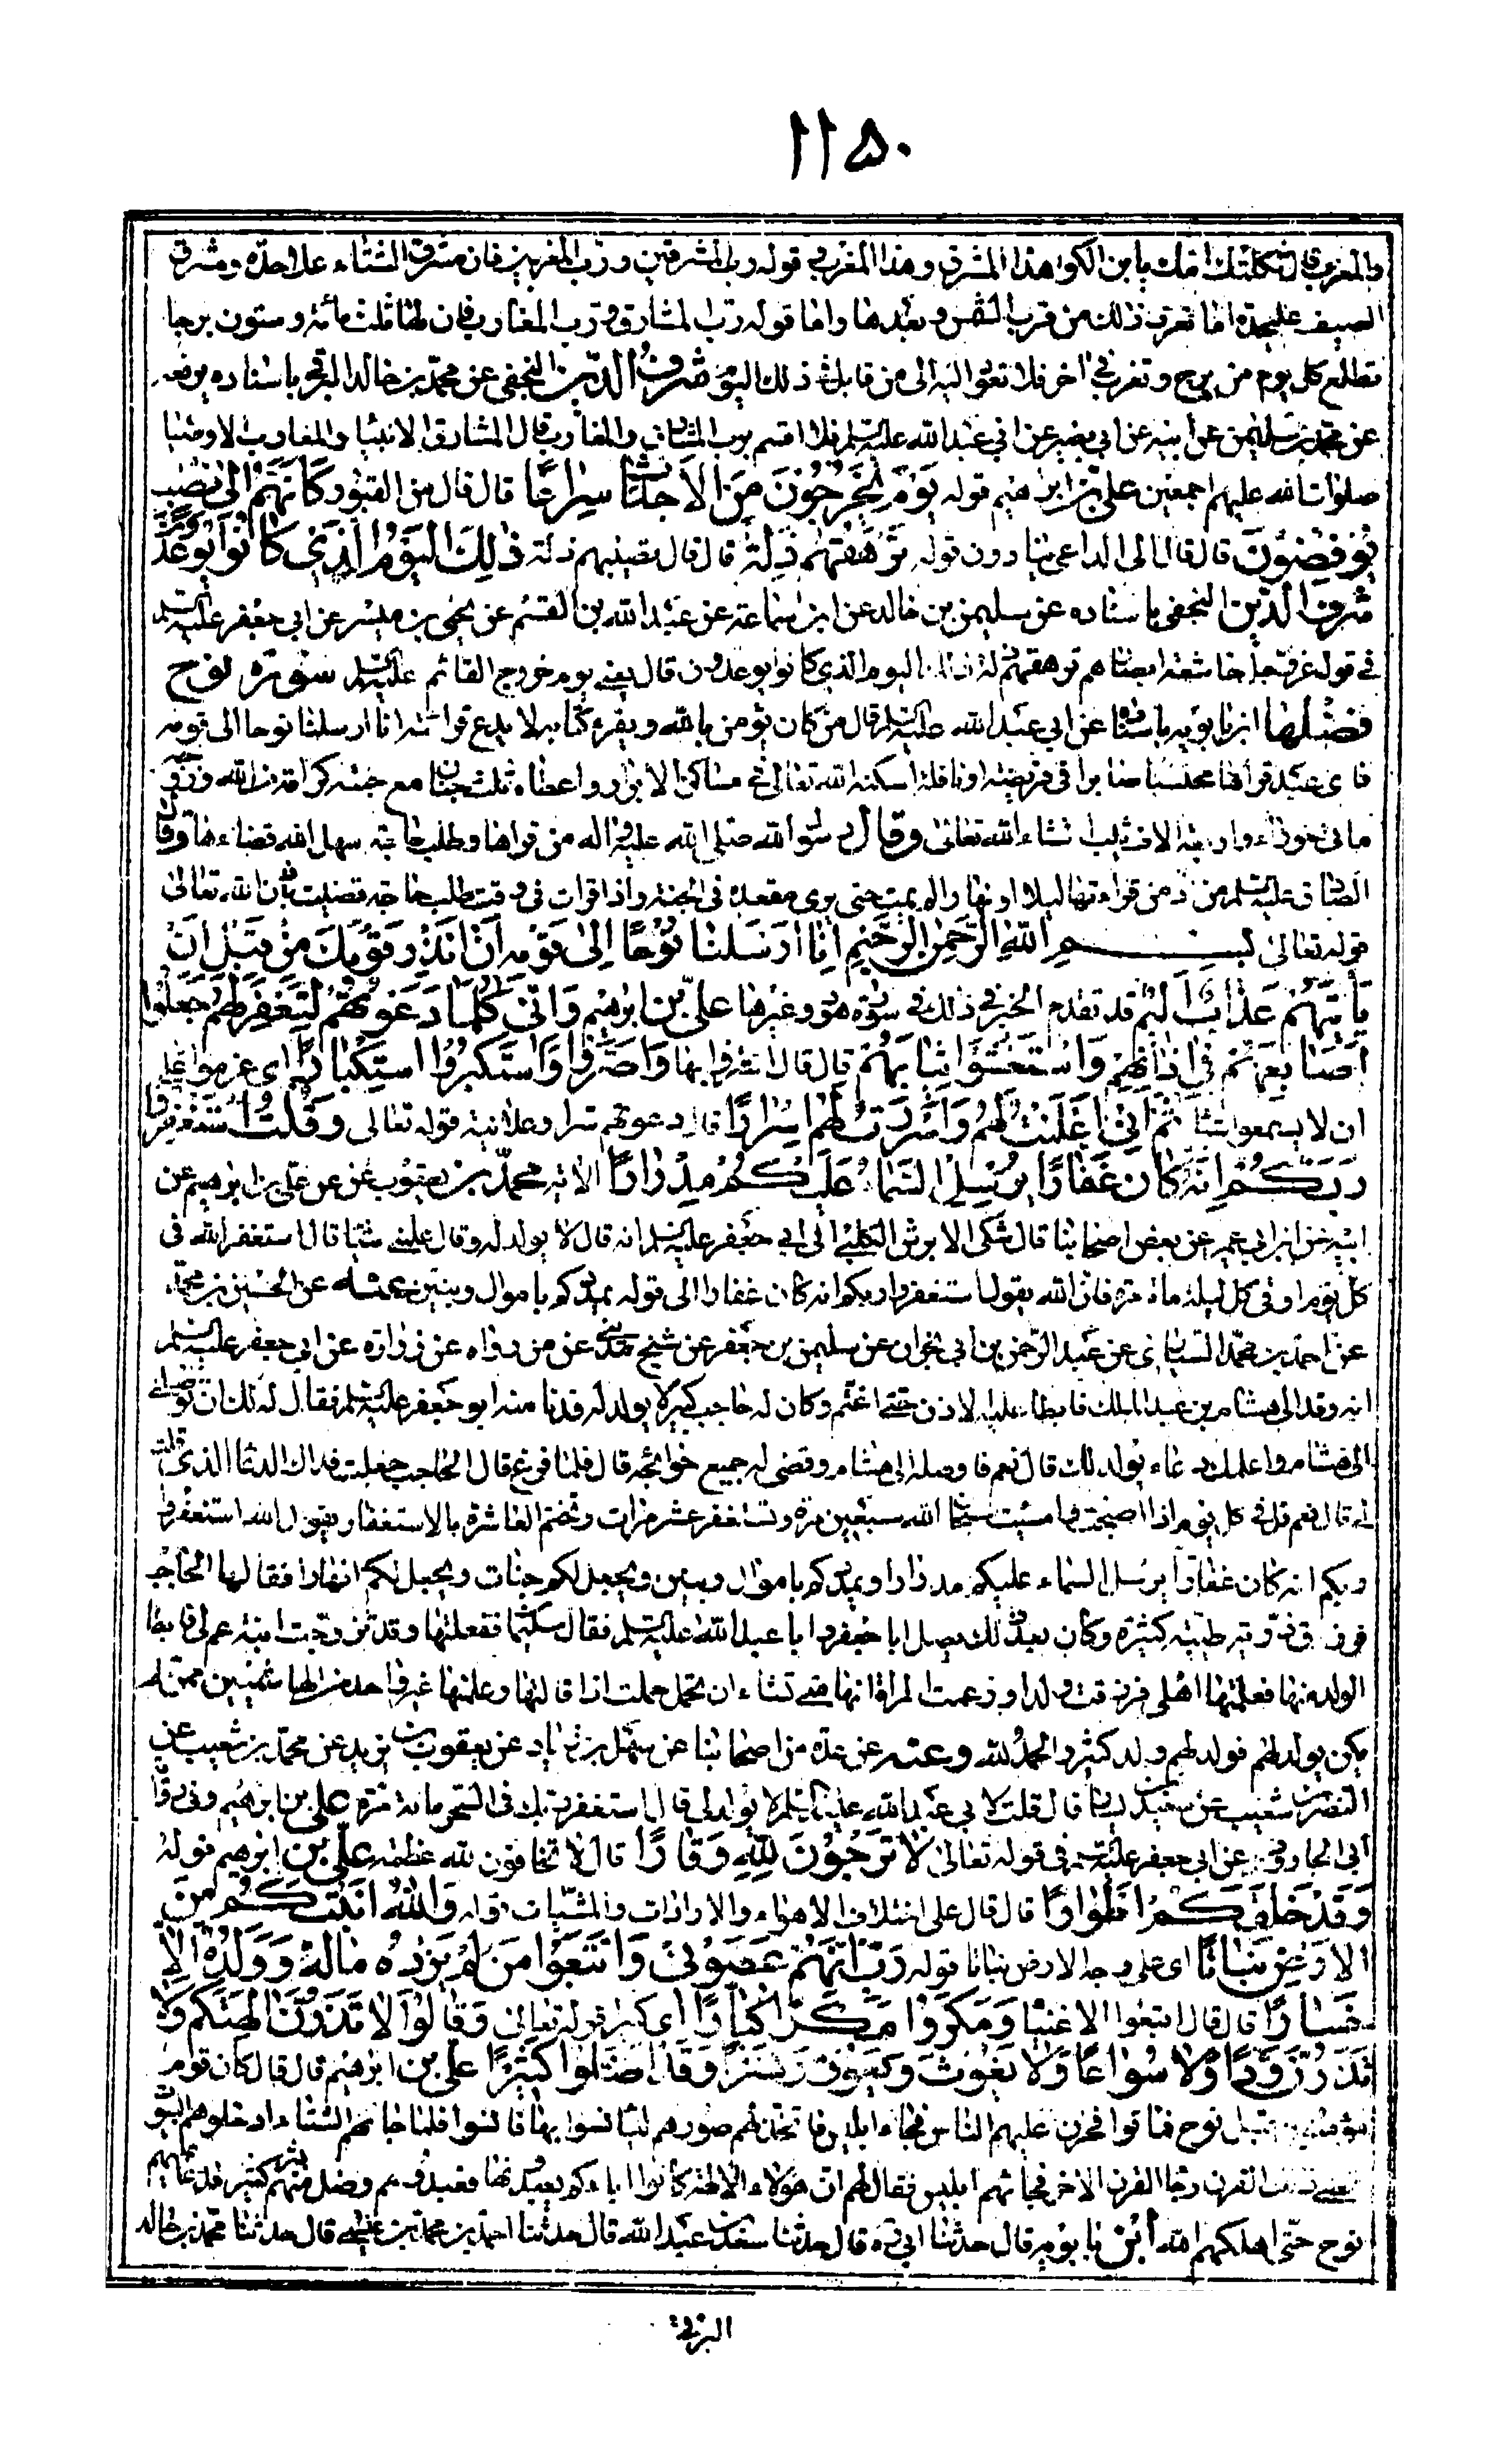 ١١۵٠
والمغرب قال ثكلتك امك يا بن الكوا هذا المشرق وهذا المغرب في قوله رب المشرقين ورب المغربين فان مشرق الشتاء على حده ومشرق
الصيف على حده اما تعرف ذلك من قرب الشمس وبعدها واما قوله رب المشارق ورب المغارب فان لها ثلث مائة وستون برجا
تطلع كل يوم من برج وتغرب في اخر فلا تعود اليه الى من قابل في ذلك اليوم شرف الدين النجفي عن محمد بن خالد البرقي باسناده يرفعه
عن محمد بن سليمن عن ابيه عن ابي بصير عن ابي عبد الله عليه السلم فلا اقسم برب المشارق والمغارب قال المشارق الانبيا والمغارب الاوصيا
صلوات الله عليهم اجمعين علي بن ابرهيم قوله يَوْمَ يَخْرُجُونَ مِنَ الْاَجْدَاثِ سِرَاعًا قال قال من القبور كَاَنَّهُمْ اِلٰى نُصُبٍ
يُوفِضُونَ قال قال الى الداعي ينادون قوله تَرْهَقُهُمْ ذِلَّةٌ قال قال تصيبهم ذلة ذٰلِكَ الْيَوْمُ الَّذِي كَانُوا يُوعَدُونَ
شرف الدين النجفي باسناده عن سليمن بن خالد عن ابن سماعة عن عبد الله بن القسم عن يحيى بن ميسر عن ابي جعفر عليه السلم
في قوله عز وجل خاشعة ابصارهم ترهقهم ذلة ذلك اليوم الذي كانوا يوعدون قال يعني يوم خروج القائم عليه السلم سورة نوح
فضلها ابن بابويه باسناده عن ابي عبد الله عليه السلم قال من كان يؤمن بالله ويقرء كتابه لا يدع قرائة انا ارسلنا نوحا الى قومه
فاي عبد قراها محتسبا صابرا في فريضة او نافلة اسكنه الله تعالى في مساكن الابرار واعطاه ثلث جنان مع جنته كرامة من الله وزوجه
مائتي حوراء واربعة الاف ثيب انشاء الله تعالى وقال رسول الله صلى الله عليه واله من قراها وطلب حاجة سهل الله قضاءها وقال
الصادق عليه السلم من ادمن قراءتها ليلا او نهارا لم يمت حتى يرى مقعده في الجنة واذا قرات في وقت طلب حاجة قضيت باذن الله تعالى
قوله تعالى بِسْمِ اللهِ الرَّحْمٰنِ الرَّحِيمِ اِنَّا اَرْسَلْنَا نُوحًا اِلٰى قَوْمِهِ اَنْ اَنْذِرْ قَوْمَكَ مِنْ قَبْلِ اَنْ
يَأْتِيَهُمْ عَذَابٌ اَلِيمٌ قد تقدم الخبر في ذلك في سورة هود وغيرها علي بن ابرهيم وَاِنِّي كُلَّمَا دَعَوْتُهُمْ لِتَغْفِرَ لَهُمْ جَعَلُوا
اَصَابِعَهُمْ فِي اٰذَانِهِمْ وَاسْتَغْشَوْا ثِيَابَهُمْ قال قال استتروا بها وَاَصَرُّوا وَاسْتَكْبَرُوا اسْتِكْبَارًا اي عزموا على
ان لا يسمعوا شيئا ثُمَّ اِنِّي اَعْلَنْتُ لَهُمْ وَاَسْرَرْتُ لَهُمْ اِسْرَارًا قال دعوتهم سرا وعلانية قوله تعالى وَقُلْتُ اسْتَغْفِرُوا
رَبَّكُمْ اِنَّهُ كَانَ غَفَّارًا يُرْسِلِ السَّمَاءَ عَلَيْكُمْ مِدْرَارًا الاية محمد بن يعقوب عن علي بن ابرهيم عن
ابيه عن ابن ابي عمير عن بعض اصحابنا قال شكى الابرش الكلبي الى ابي جعفر عليه السلم انه قال لا يولد له وقال علمني شيئا قال استغفر الله في
كل يوم او في كل ليلة مائة مرة فان الله يقول استغفروا ربكم انه كان غفارا الى قوله يمددكم باموال وبنين وعنه عن الحسين بن محمد
عن احمد بن محمد السياري عن عبد الرحمن بن ابي نجران عن سليمن بن جعفر عن شيخ مدني عن من رواه عن زرارة عن ابي جعفر عليه السلم
انه وفد الى هشام بن عبد الملك فابطا عليه الاذن حتى اغتم وكان له حاجب كبير لا يولد له فدنا منه ابو جعفر عليه السلم فقال له لك ان توصلني
الى هشام واعلمك دعاء يولد لك قال نعم فاوصله الى هشام وقضى له جميع حوائجه قال فلما فرغ قال الحاجب جعلت فداك الدعا الذي قلت
لي قال نعم قل في كل يوم اذا اصبحت وامسيت سبحان الله سبعين مرة وتستغفر عشر مرات وتختم العاشرة بالاستغفار ويقول الله استغفروا
ربكم انه كان غفارا يرسل السماء عليكم مدرارا ويمددكم باموال وبنين ويجعل لكم جنات ويجعل لكم انهارا فقالها الحاجب
فرزق ذرية طيبة كثيرة وكان بعد ذلك يصل ابا جعفر وابا عبد الله عليه السلم فقال سليمن فقلتها وقد تزوجت ابنة عم لي فابطا
الولد منها فعلمتها اهلي فرزقت ولدا وزعمت المراة انها متى تشاء ان تحمل حملت اذا قالتها وعلمتها غير واحد من الهاشميين ممن لم
يكن يولد لهم فولد لهم ولد كثير والحمد لله وعنه عن عدة من اصحابنا عن سهل بن زياد عن يعقوب بن يزيد عن محمد بن شعيب عن
النضر بن شعيب عن سعيد بن يسار قال قلت لابي عبد الله عليه السلم لا يولد لي قال استغفر ربك في السحر مائة مرة علي بن ابرهيم وفي رواية
ابي الجارود عن ابي جعفر عليه السلم في قوله تعالى لَا تَرْجُونَ لِلّٰهِ وَقَارًا قال لا تخافون لله عظمة علي بن ابرهيم قوله
وَقَدْ خَلَقَكُمْ اَطْوَارًا قال قال على اختلاف الاهواء والارادات والمشيات قوله وَاللهُ اَنْبَتَكُمْ مِنَ
الْاَرْضِ نَبَاتًا اي على وجه الارض نباتا قوله رَبِّ اِنَّهُمْ عَصَوْنِي وَاتَّبَعُوا مَنْ لَمْ يَزِدْهُ مَالُهُ وَوَلَدُهُ اِلَّا
خَسَارًا قال قال اتبعوا الاغنيا وَمَكَرُوا مَكْرًا كُبَّارًا اي كبيرا قوله تعالى وَقَالُوا لَا تَذَرُنَّ اٰلِهَتَكُمْ وَلَا
تَذَرُنَّ وَدًّا وَلَا سُوَاعًا وَلَا يَغُوثَ وَيَعُوقَ وَنَسْرًا وَقَدْ اَضَلُّوا كَثِيرًا علي بن ابرهيم قال قال كان قوم
مؤمنين قبل نوح فماتوا فحزن عليهم الناس فجاء ابليس فاتخذ لهم صورهم ليانسوا بها فانسوا فلما جائهم الشتاء ادخلوهم البيوت
فمضى ذلك القرن وجا القرن الاخر فجائهم ابليس فقال لهم ان هؤلاء الالهة كانوا اباءكم يعبدونها فعبدوهم وضل منهم بشر كثير فدعا عليهم
نوح حتى اهلكهم الله ابن بابويه قال حدثنا ابي ره قال حدثنا سعد بن عبد الله قال حدثنا احمد بن محمد بن عيسى قال حدثنا محمد بن خالد
البرقي